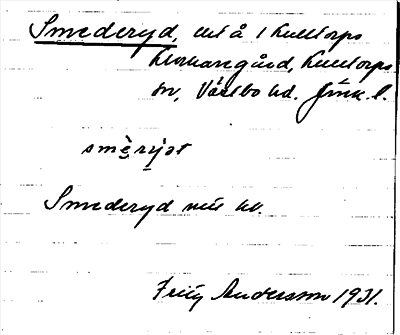 Smederyd, ut å 1 Kulltorps
Klockaregård, Kulltorps
sn, Västbo hd. Jönk. l.
smèryət
Smederyd nu hd.
Fritz Andersson 1931.